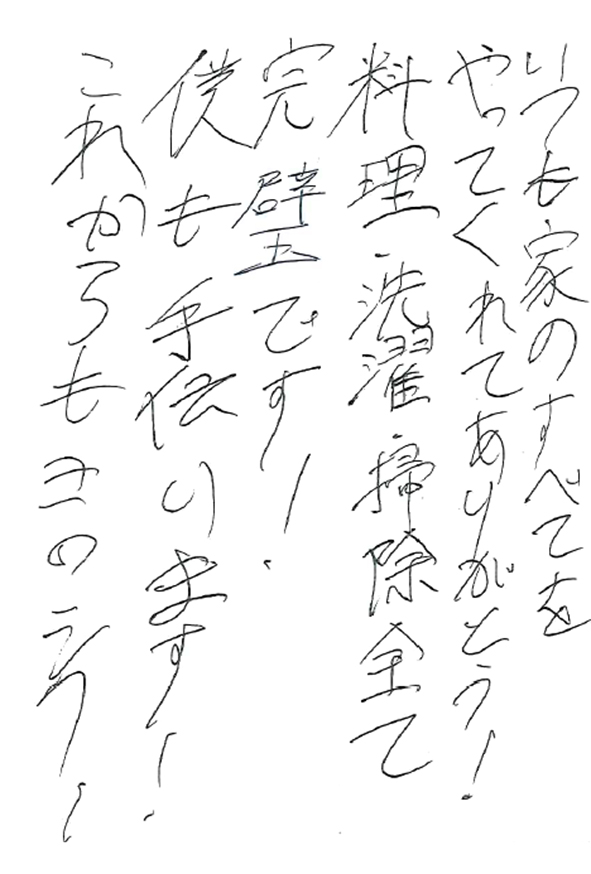 いつも家のすべてを
やってくれてありがとう!
料理・洗濯・掃除全て
完璧です!
僕も手伝います!
これからも